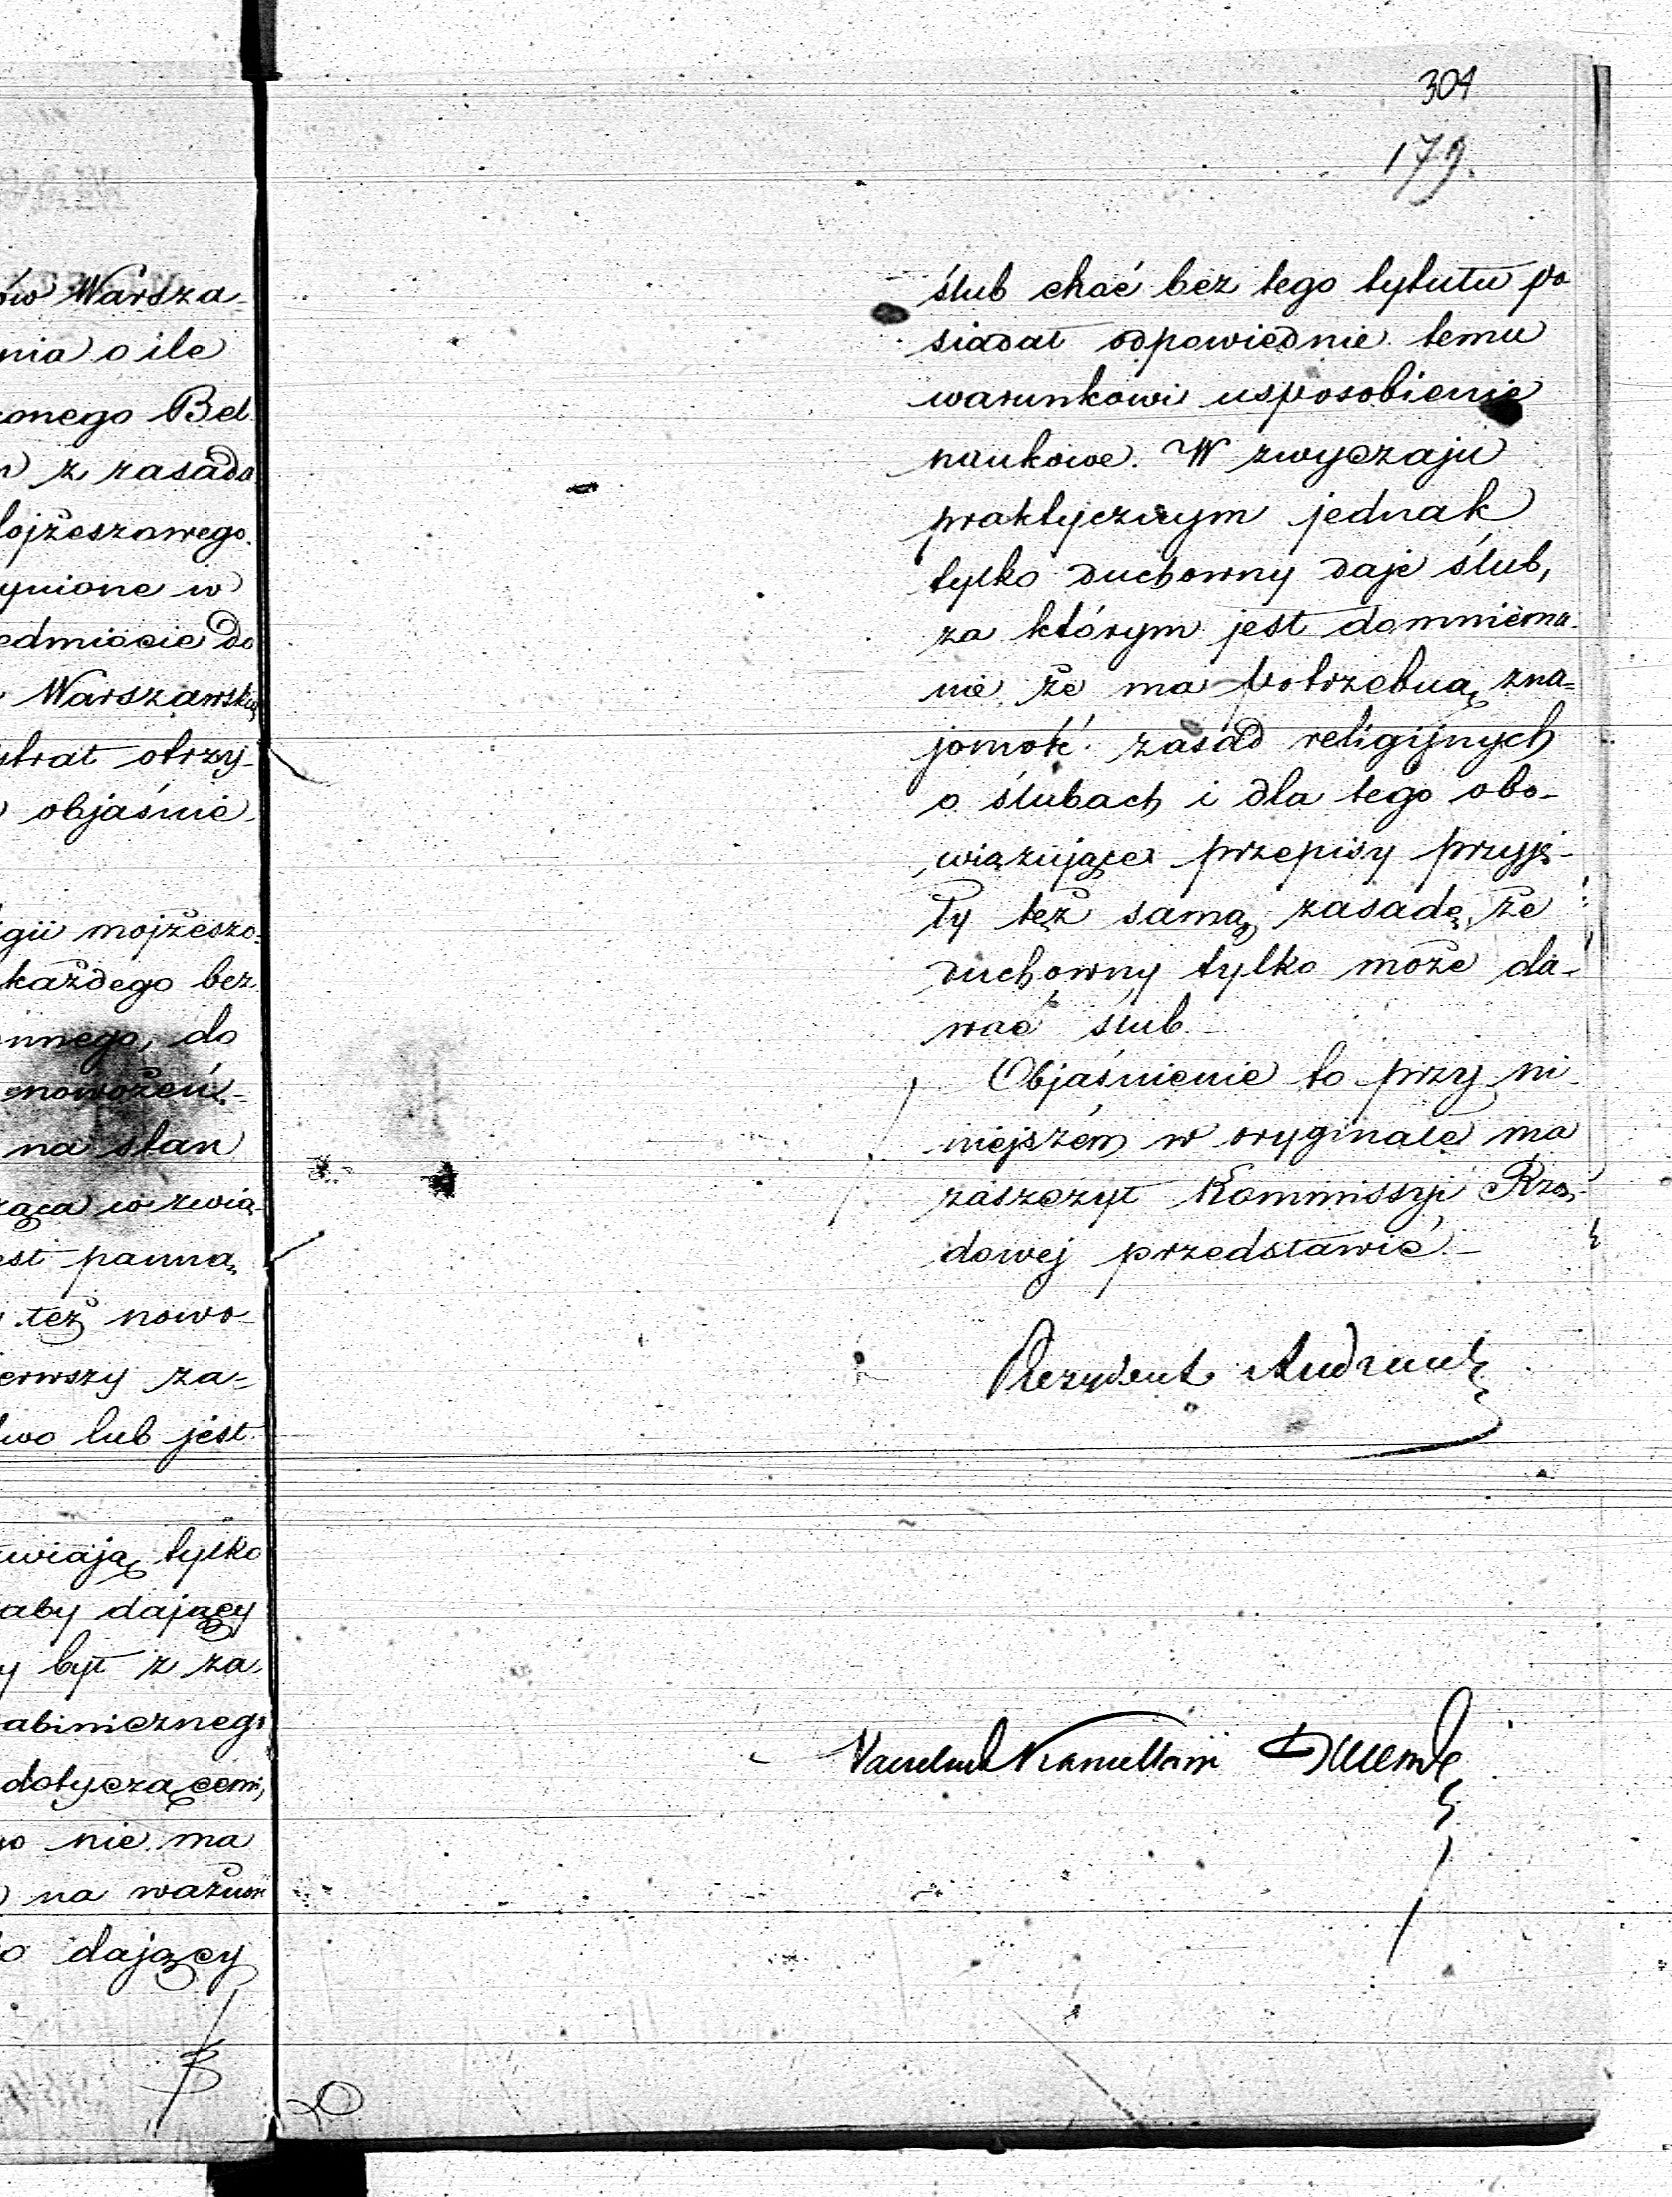 ów Warsza-
nia o ile
onego Bet
z zasada
ojżeszowego.
ynione w
edmiocie do
Warszawskiej
strat otrzy-
objaśnie-
gii mojżeszo-
każdego bez
nnego, do
nowożeń-
na stan
ząca w zwią-
est panną
też nowo-
erwszy za-
two lub jest
wiają tylko
aby dający
y był z za
abinicznego
dotyczącemi,
nie ma
na ważnoś
o dający
304
179.
ślub choć bez tego tytułu po
siadał odpowiednie temu
warunkowi usposobienie
naukowe. W zwyczaju
praktycznym jednak
tylko duchowny daje ślub,
za którym jest domniema-
nie że ma potrzebną zna-
jomość zasad religijnych
o ślubach i dla tego obo-
wiązujące przepisy przyję-
ły też samą zasadę, że
duchowny tylko może da-
wać ślub.-
Objaśnienie to przy ni-
niejszém w oryginale ma
zaszczyt Kommissyi Rzą-
dowej przedstawić.-
Prezydent Andrault
Naczelnik Kancellarii